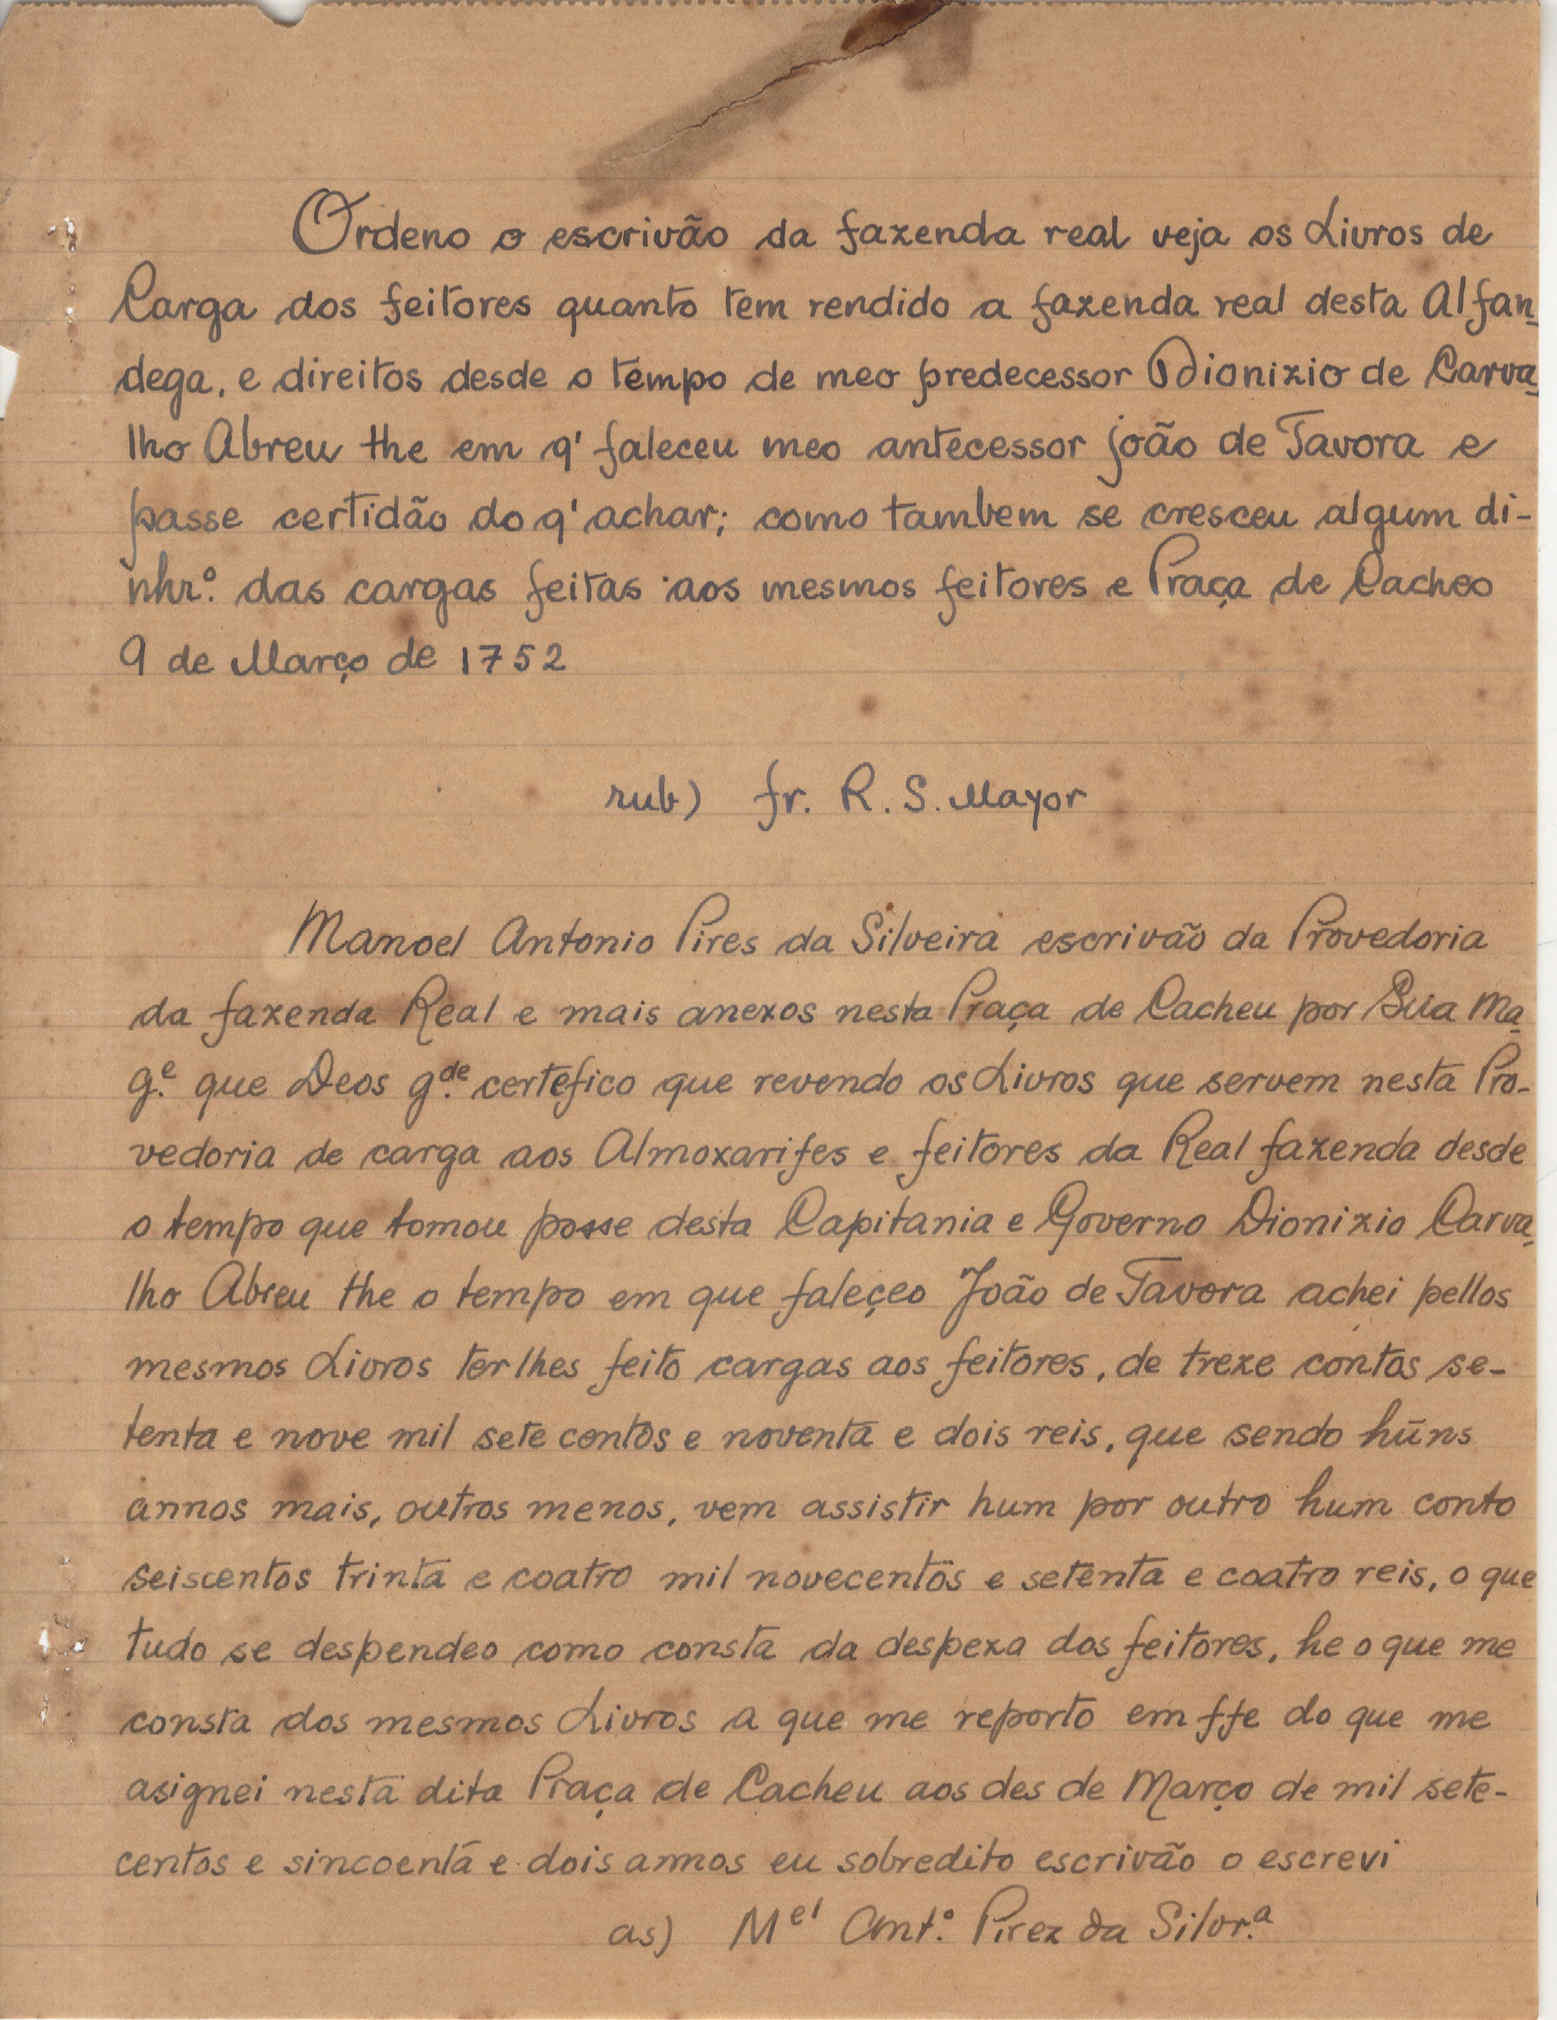 Ordeno o escrivão da fazenda real veja os Livros de
Carga dos feitores quanto tem rendido a fazenda real desta Alfan-
dega, e direitos desde o tempo de meo predecessor Dionizio de Carva-
lho Abreu the em q' faleceu meo antecessor joão de Tavora e
passe certidão do q' achar; como tambem se cresceu algum di-
nhr.º das cargas feitas aos mesmos feitores e Praça de Cacheo
9 de Março de 1752
rub) fr. R. S. Mayor
Manoel Antonio Pires da Silveira escrivão da Provedoria
da fazenda Real e mais anexos nesta Praça de Cacheu por Sua Ma-
g.e que Deos g.de certefico que revendo os Livros que servem nesta Pro-
vedoria de carga aos Almoxarifes e feitores da Real fazenda desde
o tempo que tomou posse desta Capitania e Governo Dionizio Carva-
lho Abreu the o tempo em que faleçeo João de Tavora achei pellos
mesmos Livros ter lhes feito cargas aos feitores, de treze contos se-
tenta e nove mil sete centos e noventa e dois reis, que sendo hũns
annos mais, outros menos, vem assistir hum por outro hum conto
seiscentos trinta e coatro mil novecentos e setenta e coatro reis, o que
tudo se despendeo como consta da despeza dos feitores, he o que me
consta dos mesmos Livros a que me reporto em ffe do que me
asignei nesta dita Praça de Cacheu aos des de Março de mil sete-
centos e sincoenta e dois annos eu sobredito escrivão o escrevi
as) Mel Ant.º Pirez da Silvr.a